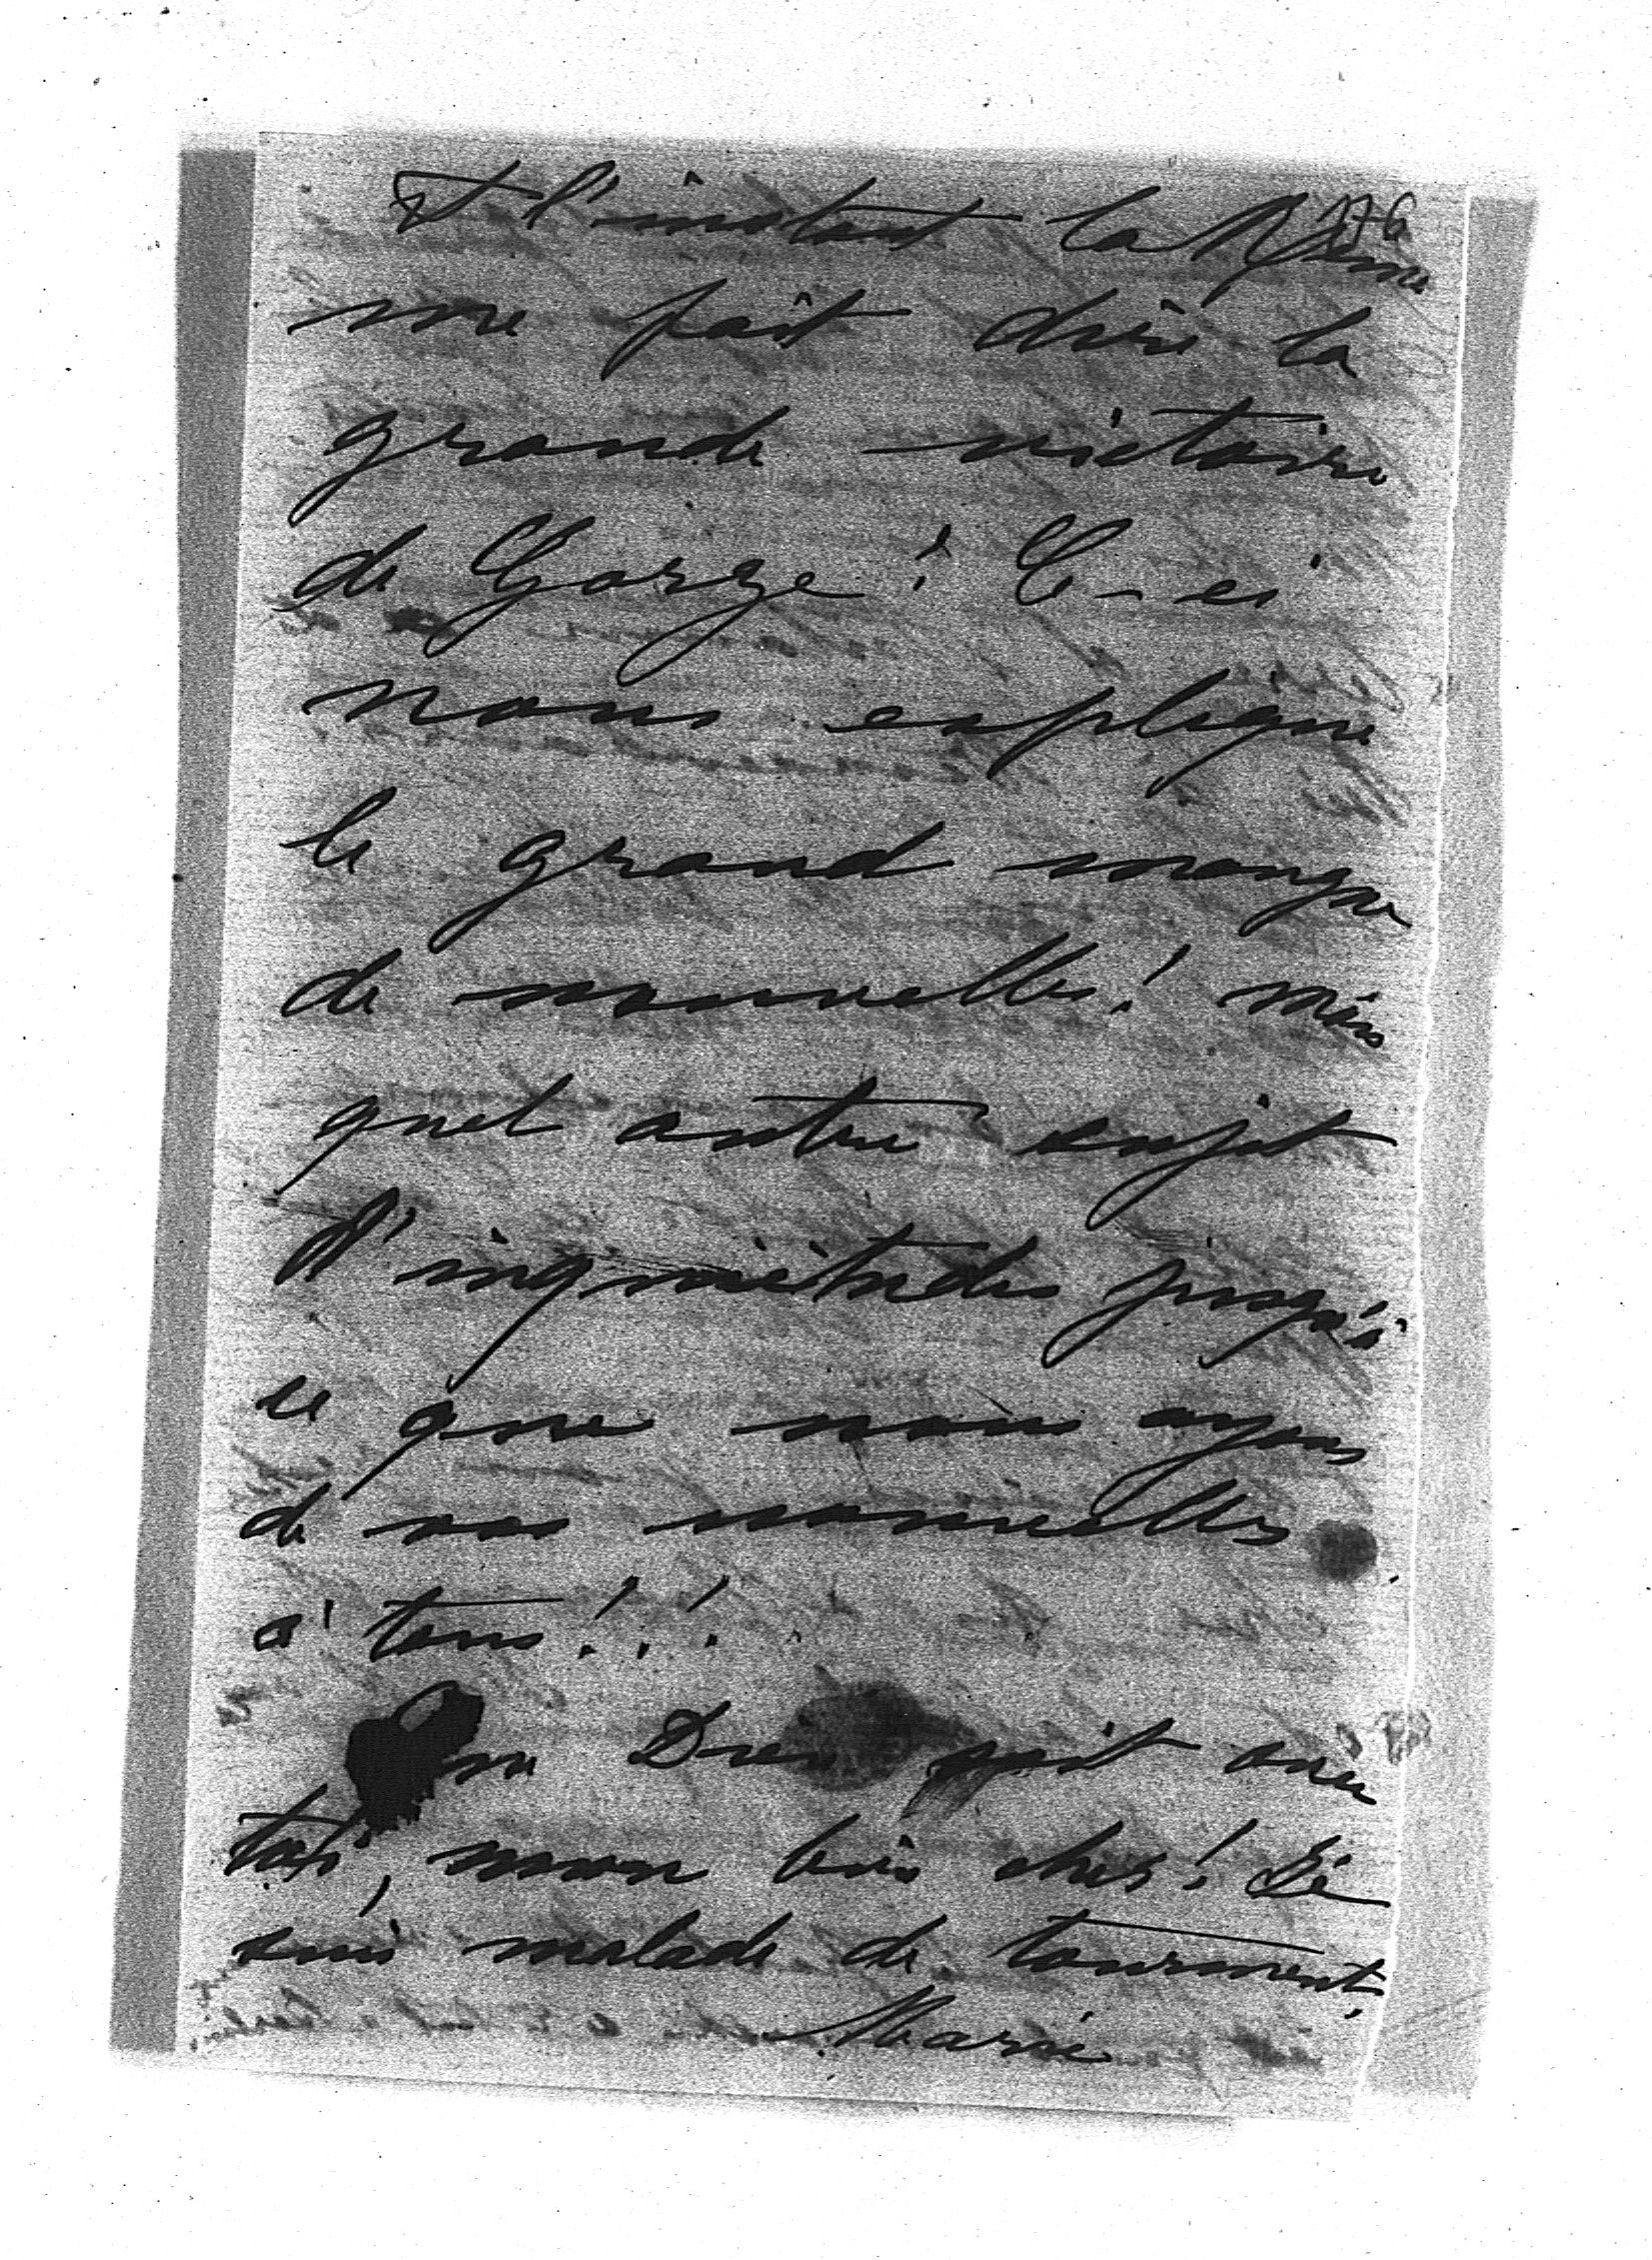 276
A l'instant la Reine
me fait dire la
grande victoire
de Gorze! Ce-ci
nous explique
le grand manque
de nouvelles! mais
quel autre sujet
d'inquiétudes jusqu'à
ce que nous ayons
de vos nouvelles
à tous!!!
Que Dieu soit avec
toi, mon bien cher! Je
suis malade de tourment,
Marie